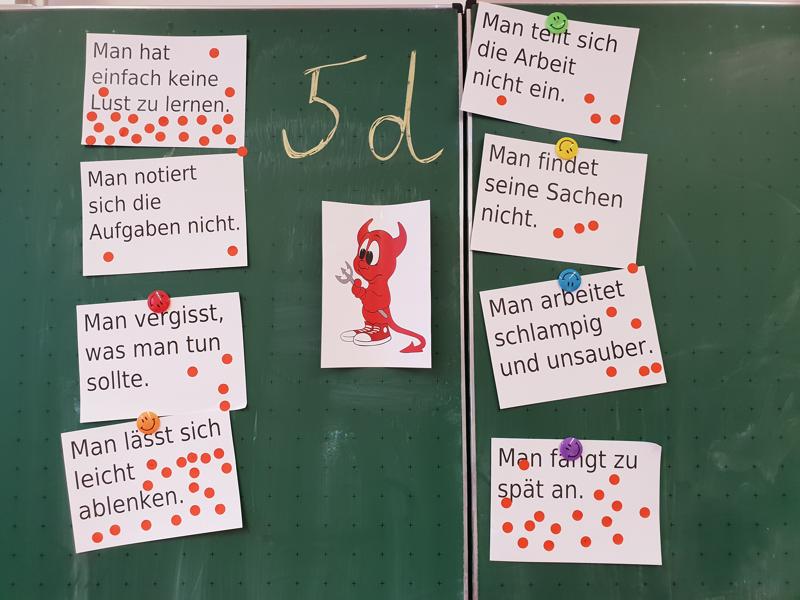 Man hat
einfach keine
Lust zu lernen.
Man notiert
sich die
Aufgaben nicht.
Man vergisst,
was man tun
sollte.
Man lässt sich
leicht
ablenken.
5d
Man teilt sich
die Arbeit
nicht ein.
Man findet
seine Sachen
nicht.
Man arbeitet
schlampig
und unsauber.
Man fängt zu
spät an.